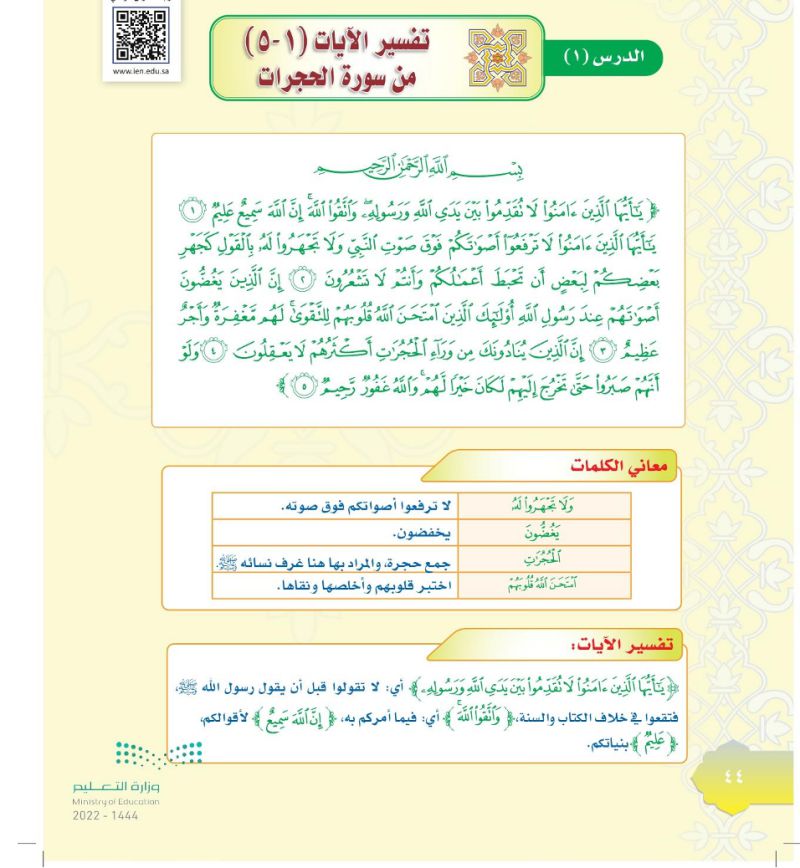 www.ien.edu.sa
الدرس (١)
تفسير الآيات (١-٥)
من سورة الحجرات
بِسْمِ اللَّهِ الرَّحْمَٰنِ الرَّحِيمِ
﴿ يَٰٓأَيُّهَا الَّذِينَ ءَامَنُوا۟ لَا تُقَدِّمُوا۟ بَيْنَ يَدَىِ اللَّهِ وَرَسُولِهِۦ وَاتَّقُوا۟ اللَّهَ ۚ إِنَّ اللَّهَ سَمِيعٌ عَلِيمٌ ١
يَٰٓأَيُّهَا الَّذِينَ ءَامَنُوا۟ لَا تَرْفَعُوٓا۟ أَصْوَٰتَكُمْ فَوْقَ صَوْتِ النَّبِىِّ وَلَا تَجْهَرُوا۟ لَهُۥ بِالْقَوْلِ كَجَهْرِ
بَعْضِكُمْ لِبَعْضٍ أَن تَحْبَطَ أَعْمَٰلُكُمْ وَأَنتُمْ لَا تَشْعُرُونَ ٢ إِنَّ الَّذِينَ يَغُضُّونَ
أَصْوَٰتَهُمْ عِندَ رَسُولِ اللَّهِ أُو۟لَٰٓئِكَ الَّذِينَ امْتَحَنَ اللَّهُ قُلُوبَهُمْ لِلتَّقْوَىٰ ۚ لَهُم مَّغْفِرَةٌ وَأَجْرٌ
عَظِيمٌ ٣ إِنَّ الَّذِينَ يُنَادُونَكَ مِن وَرَآءِ الْحُجُرَٰتِ أَكْثَرُهُمْ لَا يَعْقِلُونَ ٤ وَلَوْ
أَنَّهُمْ صَبَرُوا۟ حَتَّىٰ تَخْرُجَ إِلَيْهِمْ لَكَانَ خَيْرًا لَّهُمْ ۚ وَاللَّهُ غَفُورٌ رَّحِيمٌ ٥ ﴾
معاني الكلمات
وَلَا تَجْهَرُوا۟ لَهُۥ لا ترفعوا أصواتكم فوق صوته.
يَغُضُّونَ يخفضون.
الْحُجُرَٰتِ جمع حجرة، والمراد بها هنا غرف نسائه ﷺ.
امْتَحَنَ اللَّهُ قُلُوبَهُمْ اختبر قلوبهم وأخلصها ونقاها.
تفسير الآيات:
﴿ يَٰٓأَيُّهَا الَّذِينَ ءَامَنُوا۟ لَا تُقَدِّمُوا۟ بَيْنَ يَدَىِ اللَّهِ وَرَسُولِهِۦ ﴾ أي: لا تقولوا قبل أن يقول رسول الله ﷺ،
فتقعوا في خلاف الكتاب والسنة، ﴿ وَاتَّقُوا۟ اللَّهَ ۚ ﴾ أي: فيما أمركم به، ﴿ إِنَّ اللَّهَ سَمِيعٌ ﴾ لأقوالكم،
﴿ عَلِيمٌ ﴾ بنياتكم.
٤٤
وزارة التعـليم
Ministry of Education
2022 - 1444